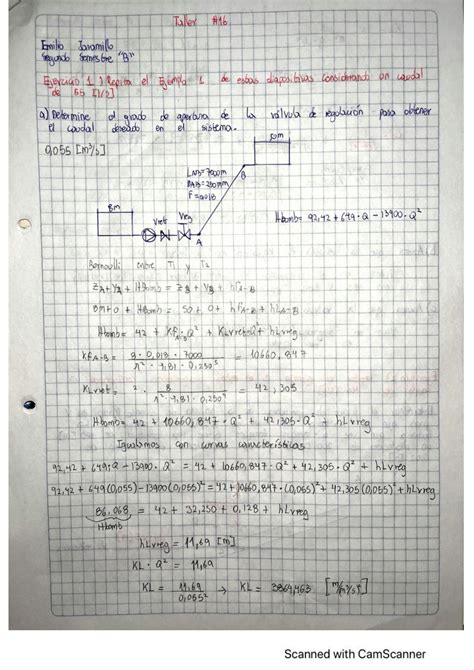 Taller #16
Emilio Jaramillo
Segundo Semestre "B"
Ejercicio 1) Repita el Ejemplo 1 de estas diapositivas considerando un caudal
de 55 [l/s]
a) Determine el grado de apertura de la válvula de regulación para obtener
el caudal deseado en el sistema.
0,055 [m³/s]
50m
B
LAB=7000m
DAB=250mm
F=0.018
8m
Vret
Vreg
A
Hbomb= 92,42 + 649·Q - 13900·Q²
Bernoulli entre T1 y T2
ZA+VA+HBomb = ZB + VB + hfA-B
8m+0+HBomb = 50+0+hfA-B+hLA-B
Hbomb= 42 + KfA-B·Q² + KLvret·Q²+ hLvreg
KfA-B = 8·0,018·7000 / π²·9,81·0,250⁵ = 10660,847
KLvret= 2 · 8 / π²·9,81·0,250⁴ = 42,305
Hbomb= 42 + 10660,847·Q² + 42,305·Q² + hLvreg
Igualamos con curvas características
92,42 + 649·Q - 13900·Q² = 42 + 10660,847·Q² + 42,305·Q² + hLvreg
92,42 + 649(0,055)-13900(0,055)² = 42+10660,847·(0,055)²+ 42,305(0,055)²+hLvreg
86,068 = 42 + 32,250 + 0,128 + hLvreg
Hbomb
hLvreg = 11,69 [m]
KL · Q² = 11,69
KL = 11,69 / 0,055² → KL = 3864,463 [m/m³/s²]
Scanned with CamScanner